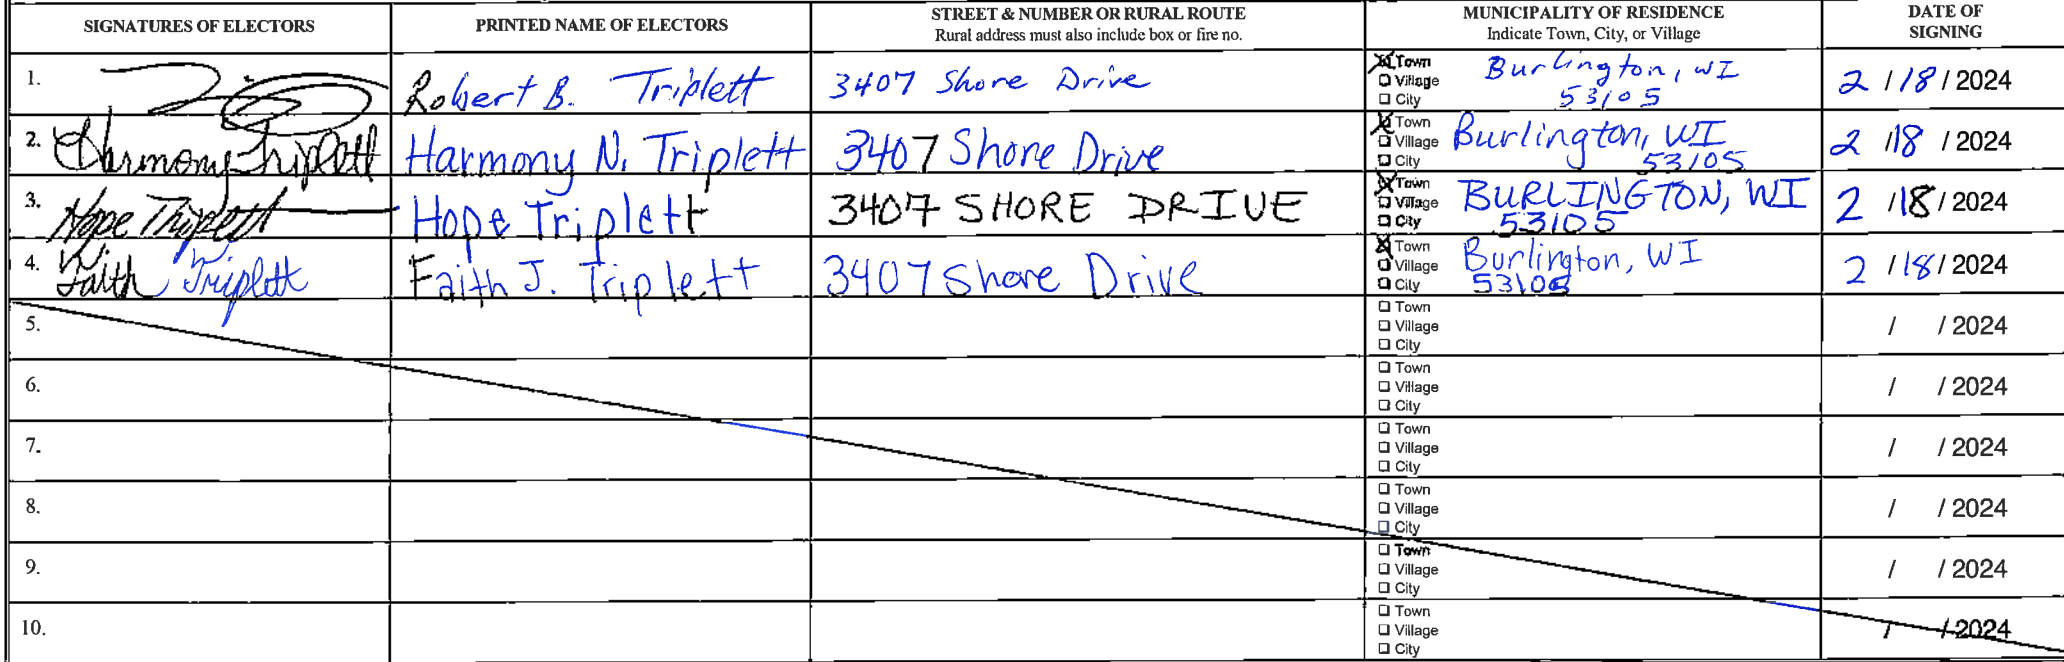 SIGNATURES OF ELECTORS
PRINTED NAME OF ELECTORS
STREET & NUMBER OR RURAL ROUTE
Rural address must also include box or fire no.
MUNICIPALITY OF RESIDENCE
Indicate Town, City, or Village
DATE OF
SIGNING
1.
Robert B. Triplett
3407 Shore Drive
Town
Village
City
Burlington, WI
53105
2 / 18 / 2024
2.
Harmony Triplett
Harmony N. Triplett
3407 Shore Drive
Town
Village
City
Burlington, WI
53105
2 / 18 / 2024
3.
Hope Triplett
Hope Triplett
3407 SHORE DRIVE
Town
Village
City
BURLINGTON, WI
53105
2 / 18 / 2024
4.
Faith Triplett
Faith J. Triplett
3407 Shore Drive
Town
Village
City
Burlington, WI
53105
2 / 18 / 2024
5.
Town
Village
City
/ / 2024
6.
Town
Village
City
/ / 2024
7.
Town
Village
City
/ / 2024
8.
Town
Village
City
/ / 2024
9.
Town
Village
City
/ / 2024
10.
Town
Village
City
/ / 2024